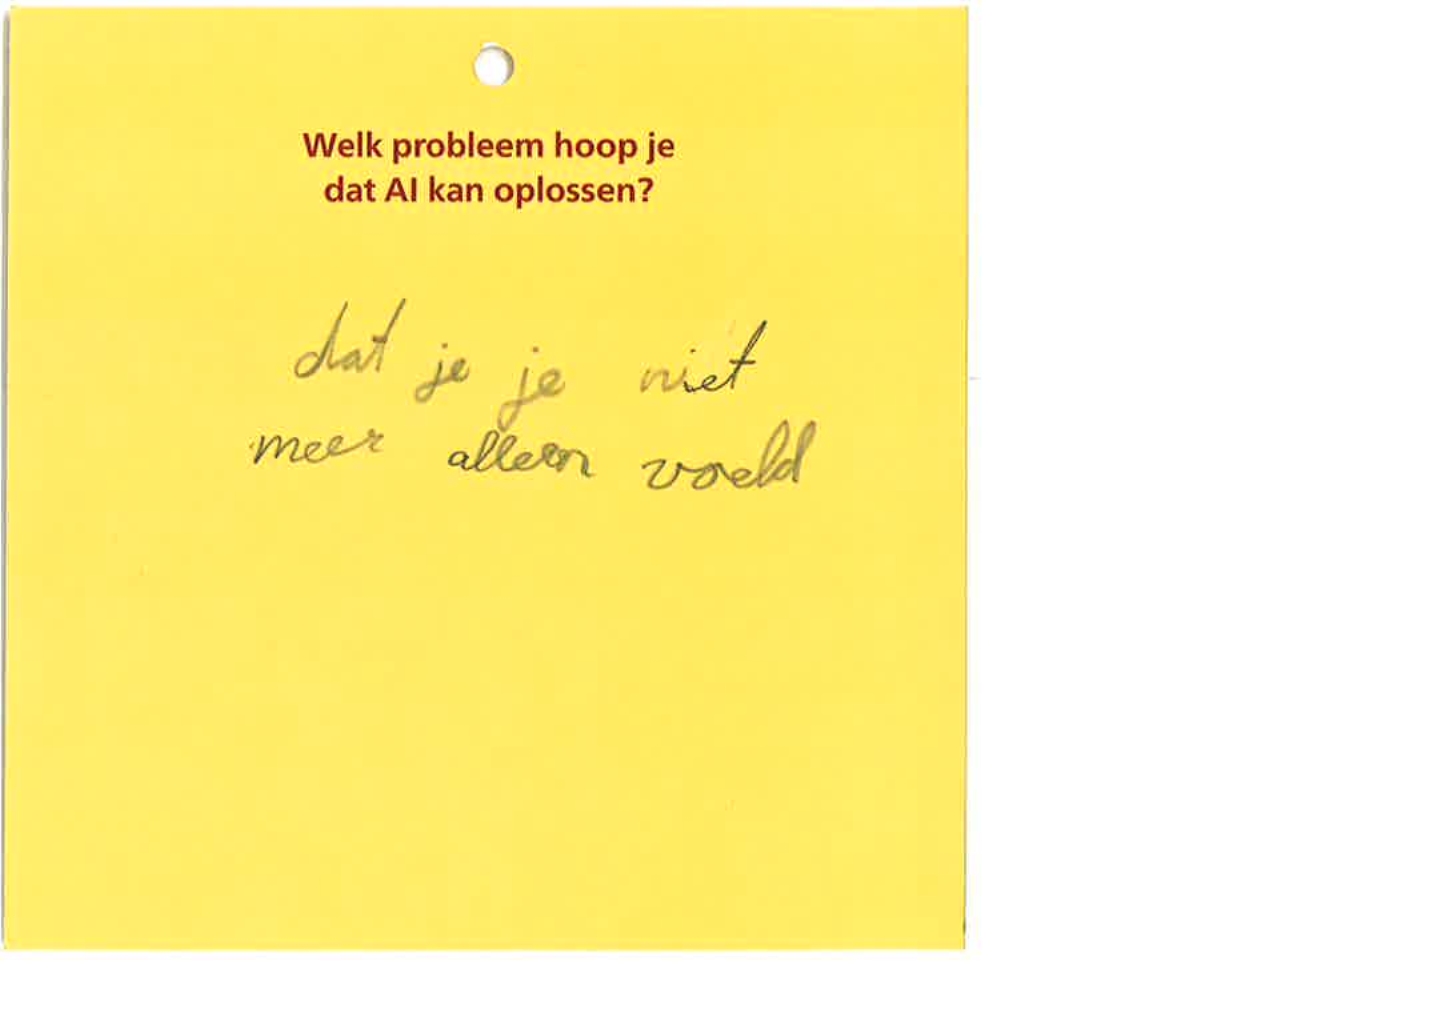 Welk probleem hoop je
dat AI kan oplossen?
dat je je niet
meer alleen voeld